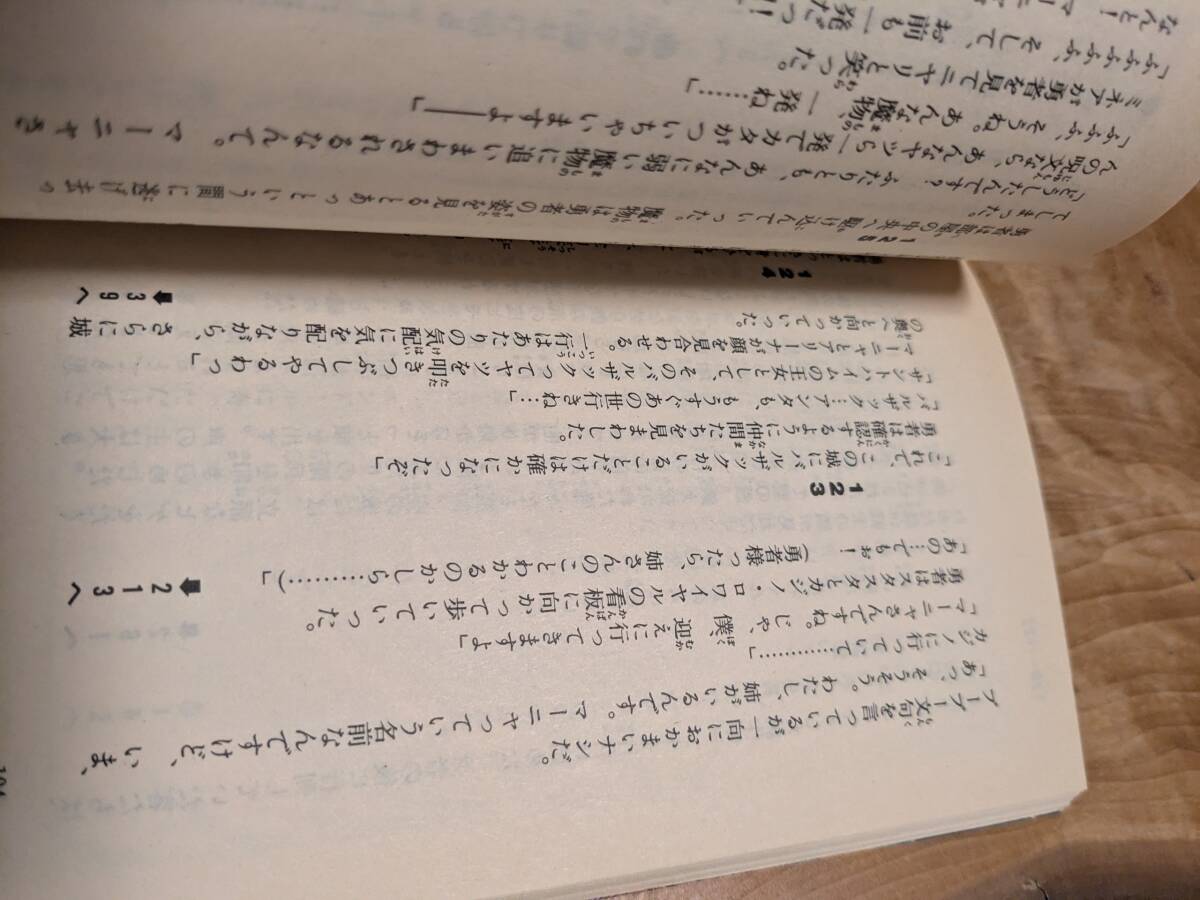 ブーブー文句を言っているが一向におかまいナシだ。
「あっ、そうそう。わたし、姉がいるんです。マーニャっていう名前なんですけど、いま、
カジノに行っていて…………」
「マーニャさんですね。じゃ、僕、迎えに行ってきますよ」
勇者はスタスタとカジノ・ロワイヤルの看板に向かって歩いていった。
「あの…でもぉ！　(勇者様ったら、姉さんのことわかるのかしら…………)」
➡213へ
123
「これで、この城にバルザックがいることだけは確かになったぞ」
勇者は確認するように仲間たちを見まわした。
「バルザック…アンタも、もうすぐあの世行きね…」
「サントハイムの王女として、そのバルザックってヤツを叩きつぶしてやるわっ」
マーニャとアリーナが顔を見合わせる。一行はあたりの気配に気を配りながら、さらに城
の奥へと向かっていった。
➡39へ
124
125
勇者は庭園の中央へ駆け込んでいった。魔物は勇者の姿を見るとあっという間に逃げ去っ
てしまった。
「どうしたんです？　ふたりとも、あんなに弱い魔物に追いまわされるなんて。マーニャさ
んの呪文なら、あんなヤツら一発でカタがついちゃいますよ――」
「ふふふ、そうね。あんな魔物、一発ね……」
ミネアが勇者を見てニヤリと笑った。
「ふふふふ、そして、お前も一発だっ！
なんと！　マー